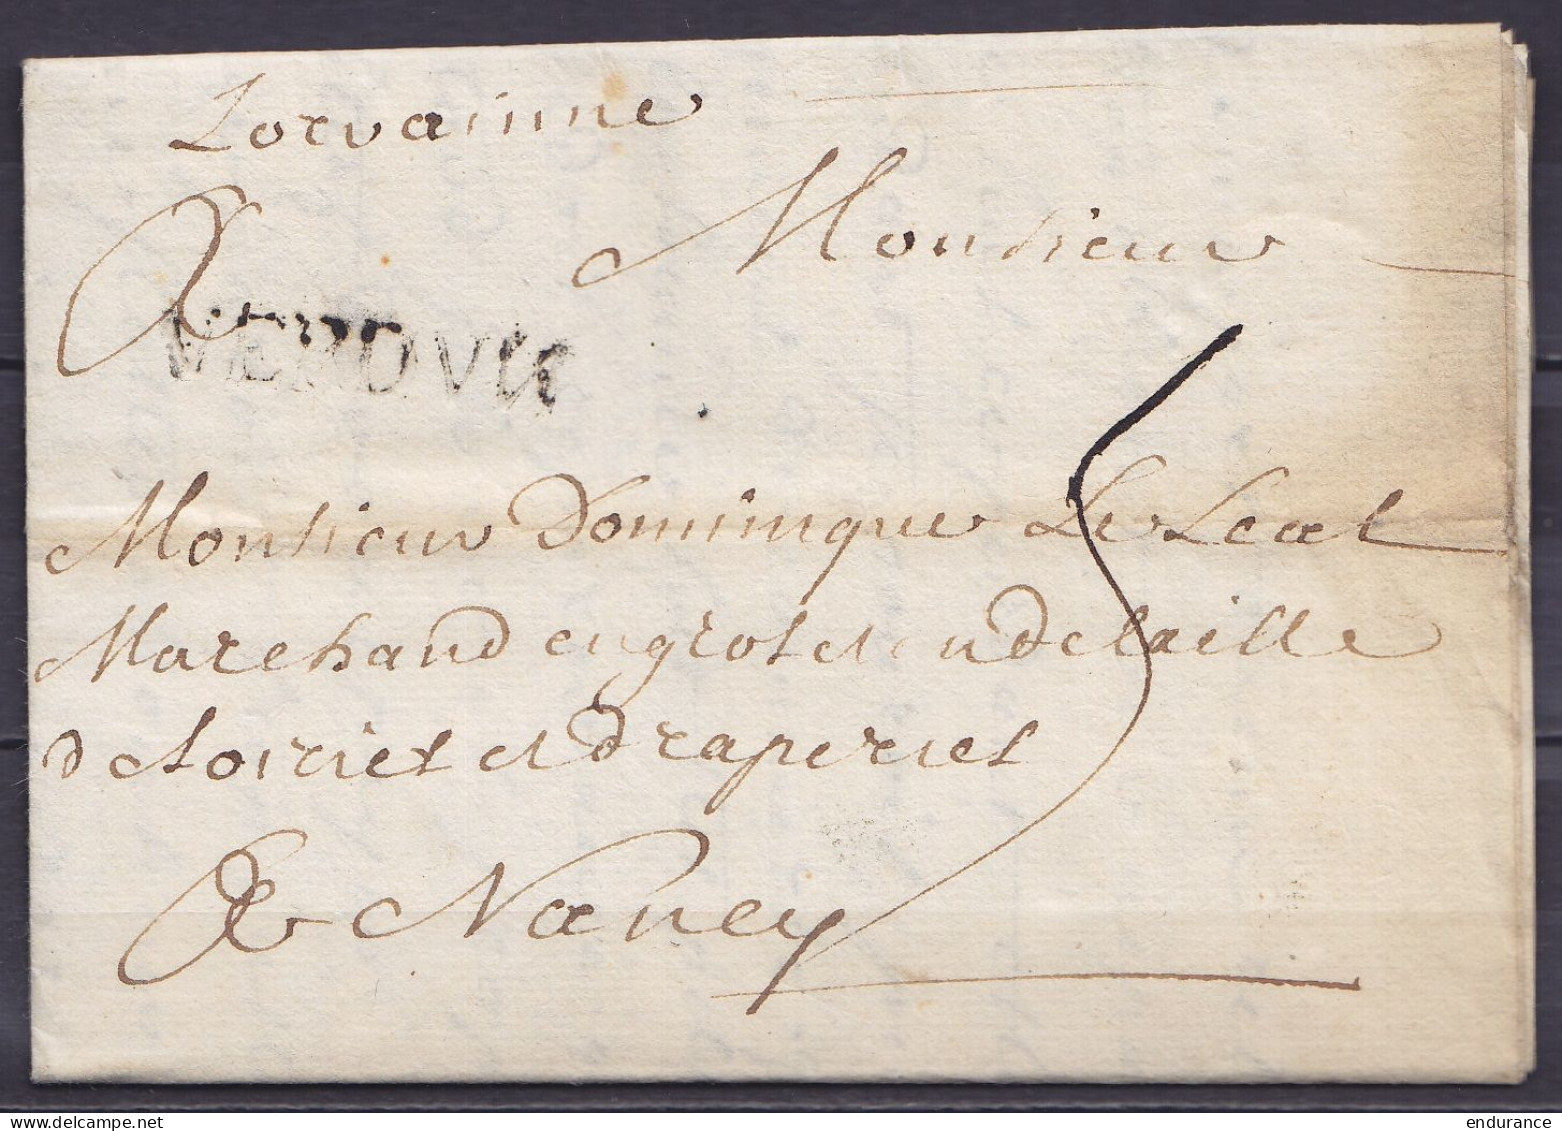 Lorrainne
A Monsieur
VERDVN
5
Monsieur Dominique Le Leal
Marchand en grot et en detaille
de soiriet et draperiet
A Nancy
delcampe.net
endurance